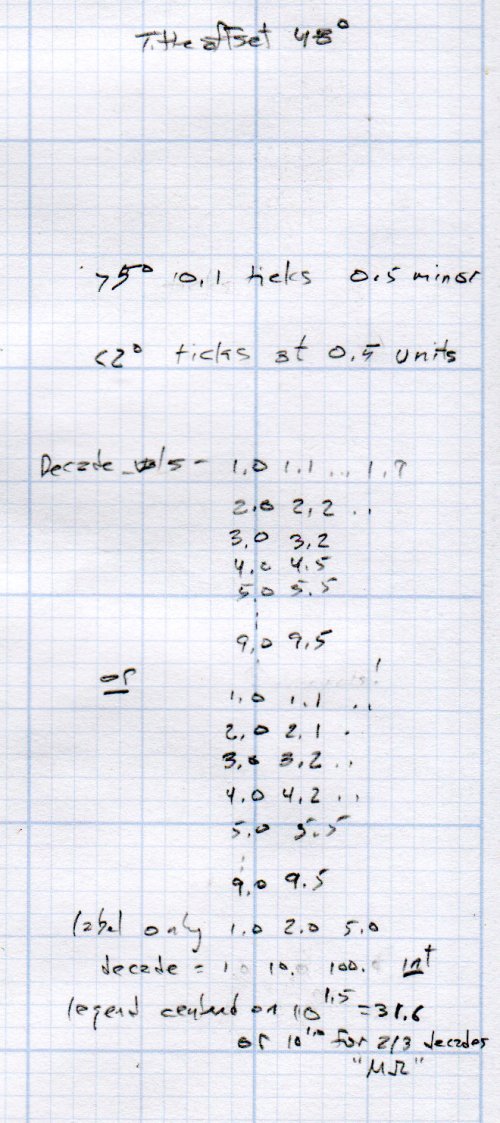 Title offset 45°
>5° 0.1 ticks 0.5 minor
<2° ticks at 0.5 units
Decade_vals = 1.0 1.1 ... 1.9
2.0 2.2 ..
3.0 3.2
4.0 4.5
5.0 5.5
9.0 9.5
or
1.0 1.1 ..
2.0 2.1 .
3.0 3.2 ..
4.0 4.2 ..
5.0 5.5
9.0 9.5
label only 1.0 2.0 5.0
decade = 1. 10. 100. int
legend centred on 10^1.5 = 31.6
or 10^1.0 for 2/3 decades
"MΩ"